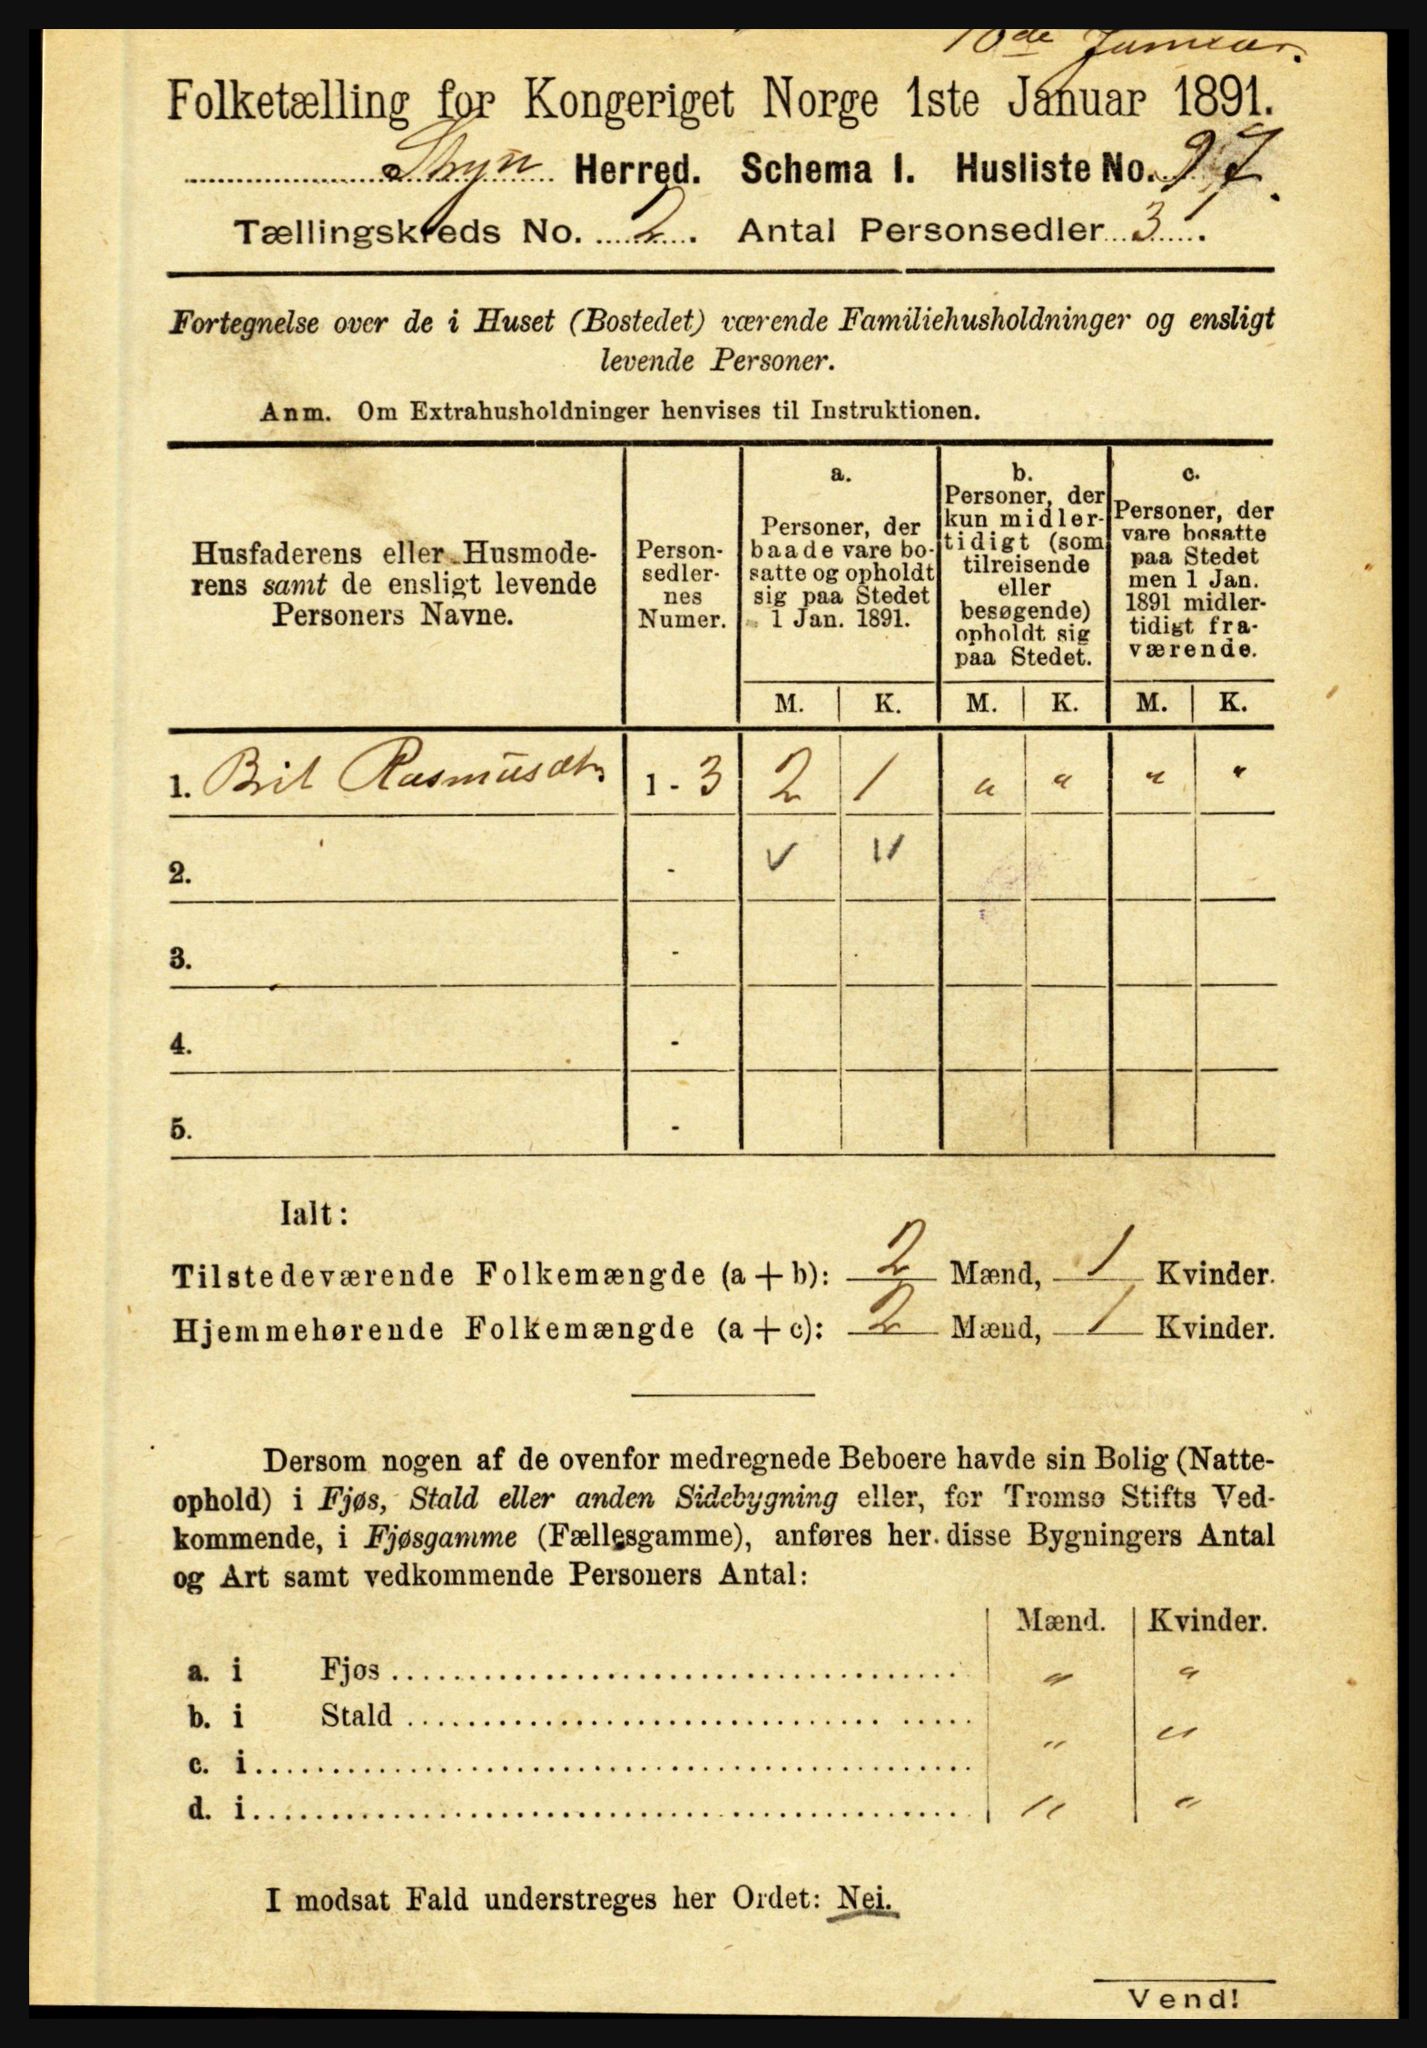 10de Januar.
Folketælling for Kongeriget Norge 1ste Januar 1891.
Stryn Herred. Schema I. Husliste No. 97.
Tællingskreds No. 2. Antal Personsedler 3.
Fortegnelse over de i Huset (Bostedet) værende Familiehusholdninger og ensligt
levende Personer.
Anm. Om Extrahusholdninger henvises til Instruktionen.
Husfaderens eller Husmode-
rens samt de ensligt levende
Personers Navne.
Person-
sedler-
nes
Numer.
a.
Personer, der
baade vare bo-
satte og opholdt
sig paa Stedet
1 Jan. 1891.
b.
Personer, der
kun midler-
tidigt (som
tilreisende
eller
besøgende)
opholdt sig
paa Stedet.
c.
Personer, der
vare bosatte
paa Stedet
men 1 Jan.
1891 midler-
tidigt fra-
værende.
M. K. M. K. M. K.
1. Brit Rasmusdtr 1 - 3 2 1 " " " "
2. -
3. -
4. -
5. -
Ialt:
Tilstedeværende Folkemængde (a + b): 2 Mænd, 1 Kvinder.
Hjemmehørende Folkemængde (a + c): 2 Mænd, 1 Kvinder.
Dersom nogen af de ovenfor medregnede Beboere havde sin Bolig (Natte-
ophold) i Fjøs, Stald eller anden Sidebygning eller, for Tromsø Stifts Ved-
kommende, i Fjøsgamme (Fællesgamme), anføres her disse Bygningers Antal
og Art samt vedkommende Personers Antal:
Mænd. Kvinder.
a. i Fjøs " "
b. i Stald " "
c. i
d. i " "
I modsat Fald understreges her Ordet: Nei.
Vend!